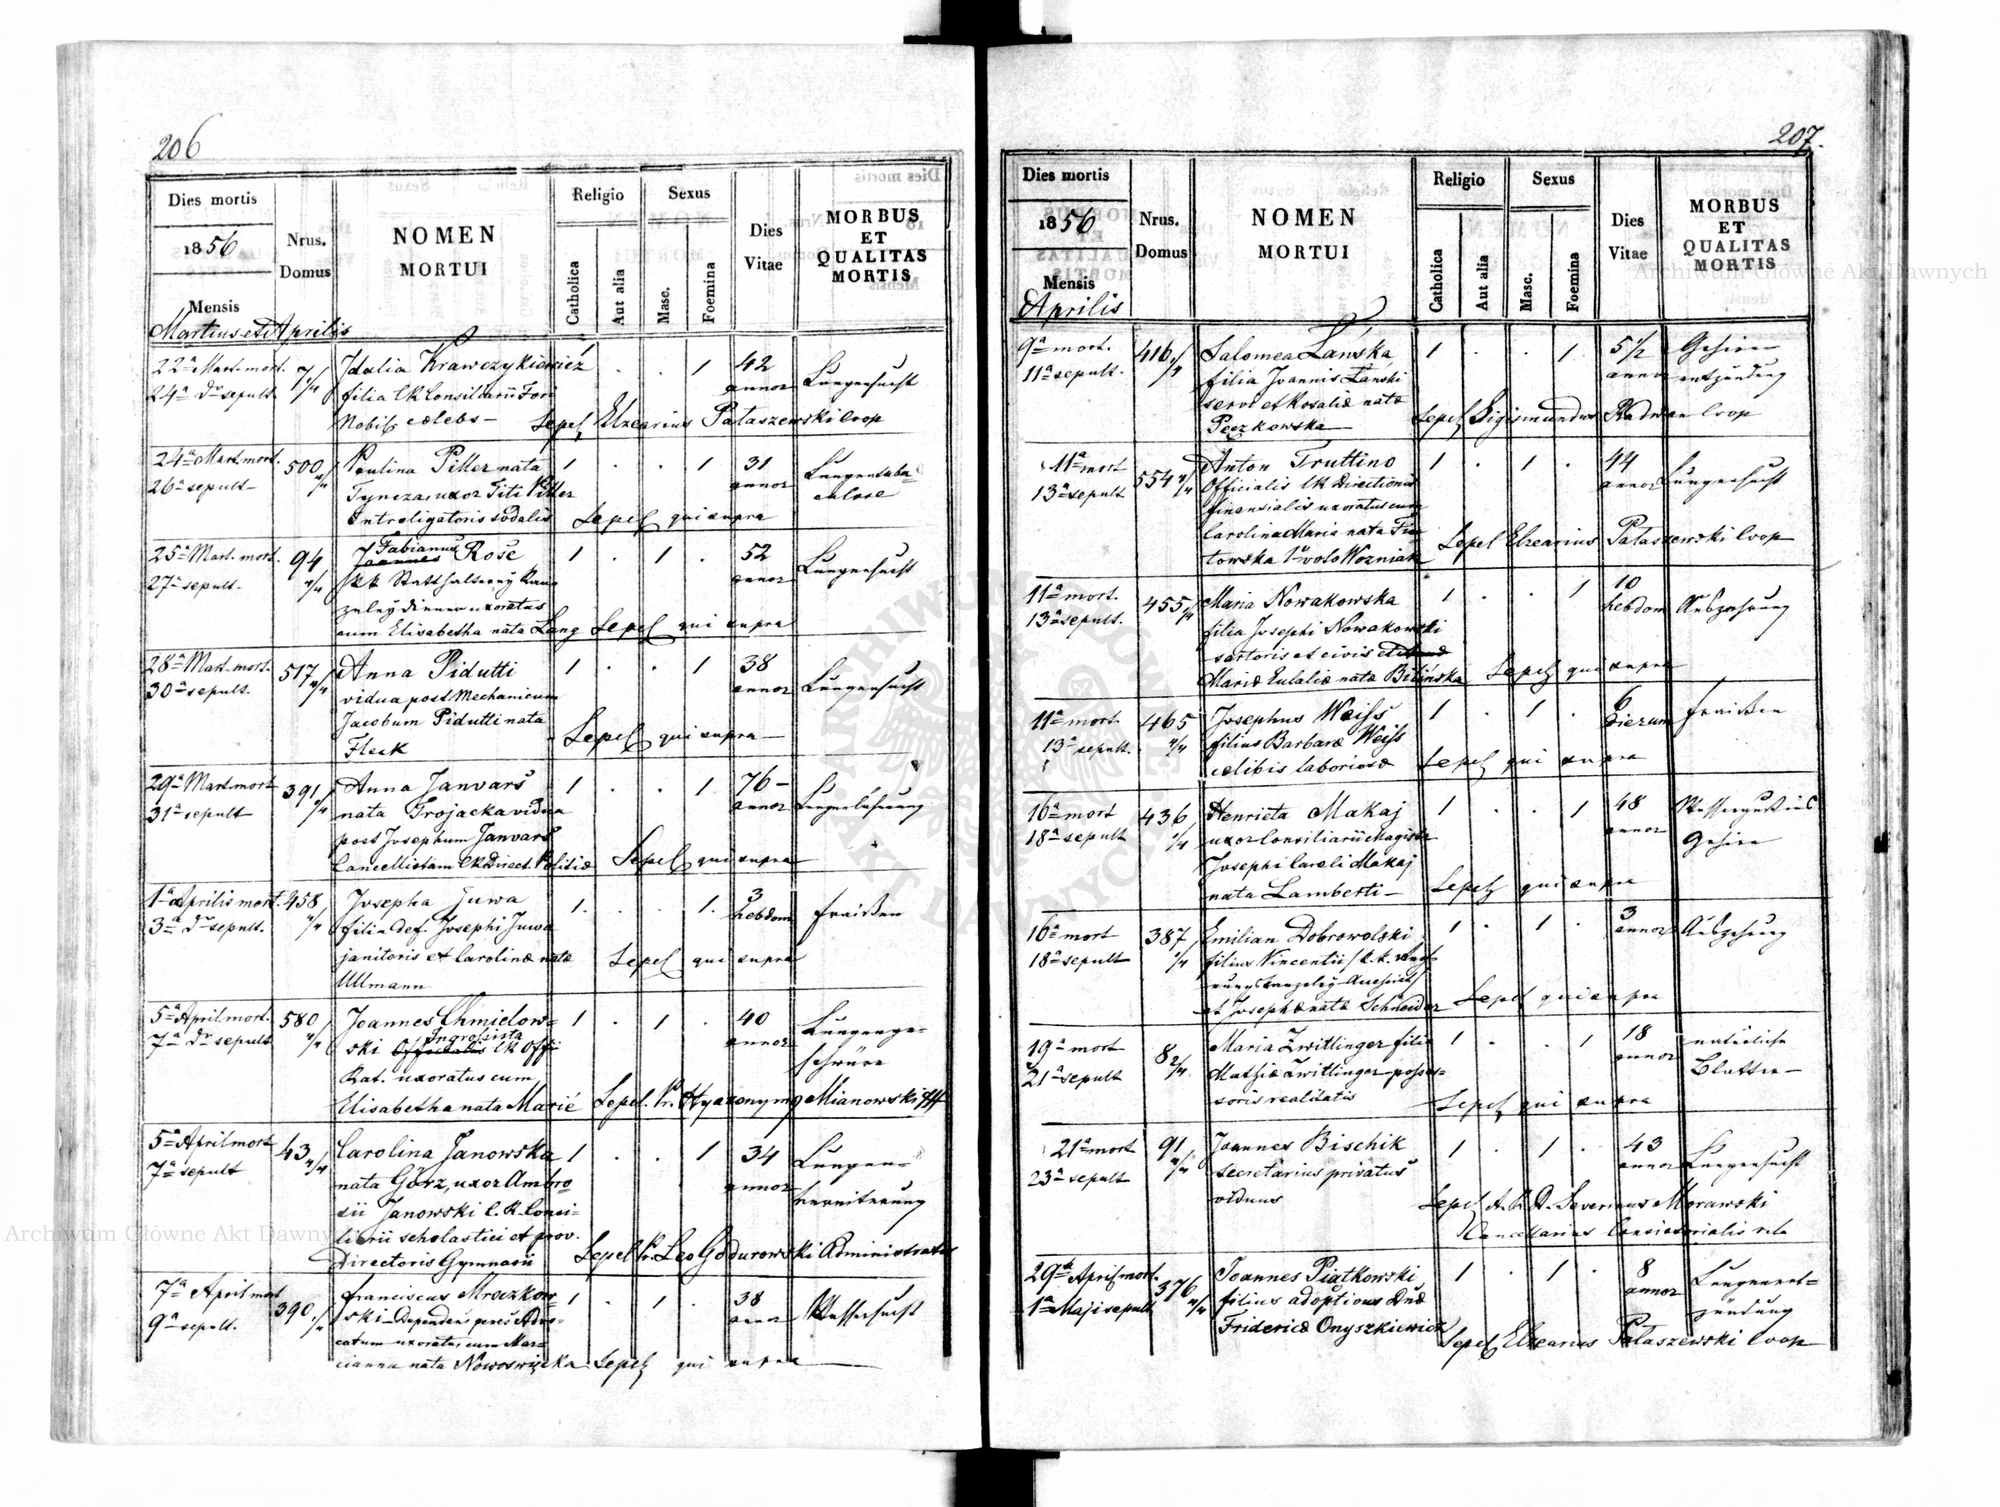 206
Dies mortis
1856
Mensis
Martius et Aprilis
Nrus.
Domus
NOMEN
MORTUI
Religio
Catholica
Aut alia
Sexus
Masc.
Foemina
Dies
Vitae
MORBUS
ET
QUALITAS
MORTIS
22a Mart. mort. 7 4/4 Idalia Krawczykiewicz 1 . . 1 42 Lungensucht
24a Dto sepult. filia CK Consiliarii Fori annor
Nobil. cælebs – Sepel. Elzearius Pałaszewski Coop
24a Mart. mort. 500 4/4 Paulina Piller nata 1 . . 1 31 Lungentuba-
26a sepult – Tyncza, uxor Titi Piller annor culose
Introligatoris sodalis Sepel qui supra
25a Mart. mort. 94 4/4 Fabianus Joannes Rose 1 . 1 . 52 Lungensucht
27a sepult. KK Statthalterey Kan annor
zuleydiener uxoratus
cum Elisabetha nata Lang Sepel qui supra
28a Mart. mort. 517 4/4 Anna Pidutti 1 . . 1 38 Lungensucht
30a sepult. vidua post Mechanicum annor
Jacobum Pidutti nata
Fleck Sepel qui supra –
29a Mart. mort 391 4/4 Anna Janvars 1 . . 1 76 – Lungenlähmung
31a sepult nata Trojacka vidua annor
post Josephum Janvars
Cancellistam CK Direct. Politiæ Sepel qui supra
1a Aprilis mort. 458 4/4 Josepha Juwa 1. . . 1. 3 Fraißen
3a Dto sepult. filia def. Josephi Juwa hebdom
janitoris et Carolinæ natæ Sepel qui supra
Ullmann
5a April mort. 580 4/4 Joannes Chmielow- 1 . 1 . 40 Lungenge-
7a Dto sepult ski Officialis Ingrossista CK Offii annor schwüre
Rat. uxoratus cum
Elisabetha nata Marié Sepel. Pr. Hyaconymo Mianowski
5a April mort 43 4/4 Carolina Janowska 1 . . 1 34 Lungen-
7a sepult nata Görz, uxor Ambro- annor vereiterung
sii Janowski C. K. Consi-
liarii scholastici et prov.
Directoris Gymnasii Sepel Pr. Leo Godurowski Administrator
7a April mort 390 Franciscus Mroczkow- 1 . 1 . 38 Wassersucht
9a sepult. ski – Dependens penes Advo- annor
catum uxoratus cum Mar-
cianna nata Nowoswiecka Sepel qui supra
207.
Dies mortis
1856
Mensis
Aprilis
Nrus.
Domus
NOMEN
MORTUI
Religio
Catholica
Aut alia
Sexus
Masc.
Foemina
Dies
Vitae
MORBUS
ET
QUALITAS
MORTIS
9a mort. 416 4/4 Salomea Łańska 1 . . 1 5 1/2 Gehirn
11a sepult. filia Joannis Łanski annor entzündung
servi et Rosaliæ natæ
Pęczkowska – Sepel Sigismundus Radwan Coop
11a mort 554 4/4 Anton Truttino 1 . 1 . 44 Lungensucht
13a sepult Officialis CK Directionis annor
finansialis uxoratus cum
Carolina Maria nata
towska 1o voto Wozniak Sepel Elzearius Pałaszewski Coop
11a mort. 455 4/4 Maria Nowakowska 1 . . 1 10 Auszehrung
13a sepult. filia Josephi Nowakowski hebdom
sartoris et civis et
Mariæ Eulaliæ natæ Bilińska Sepel qui supra
11a mort. 465 4/4 Josephus Weiss 1 . 1 . 6 Fraißen
13a sepult. filius Barbaræ Weiss dierum
cælibis laboriosæ Sepel qui supra
16a mort 436 1/4 Henrieta Makaj 1 . . 1 48 Wasserguß ins
18a sepult uxor Consiliarii Magistr annor Gehirn
Josephi Caroli Makaj
nata Lamberti – Sepel qui supra
16a mort 387 1/4 Emilian Dobrowolski 1 . 1 . 3 Auszehrung
18a sepult filius Vincentii annor
et Josephæ natæ Schneider Sepel qui supra
19a mort 8 2/4 Maria Zwitlinger filia 1 . . 1 18 natürliche
21a sepult Mathiæ Zwitlinger posses- annor Blatter –
soris realitatis Sepel qui supra
21a mort 91 4/4 Joannes Bischik 1 . 1 . 43 Lungensucht
23a sepult secretarius privatus annor
viduus Sepel A. R. D. Severinus Morawski
Cancellarius Consistorialis
29a April mort. 376 4/4 Joannes Piatkowski 1 . 1 . 8 Lungenent-
1a Maji sepult filius adoptivus Dnæ annor zündung
Fridericæ Onyszkiewicz Sepel Elzearius Pałaszewski Coop
Archiwum Główne Akt Dawnych
Archiwum Główne Akt Dawnych